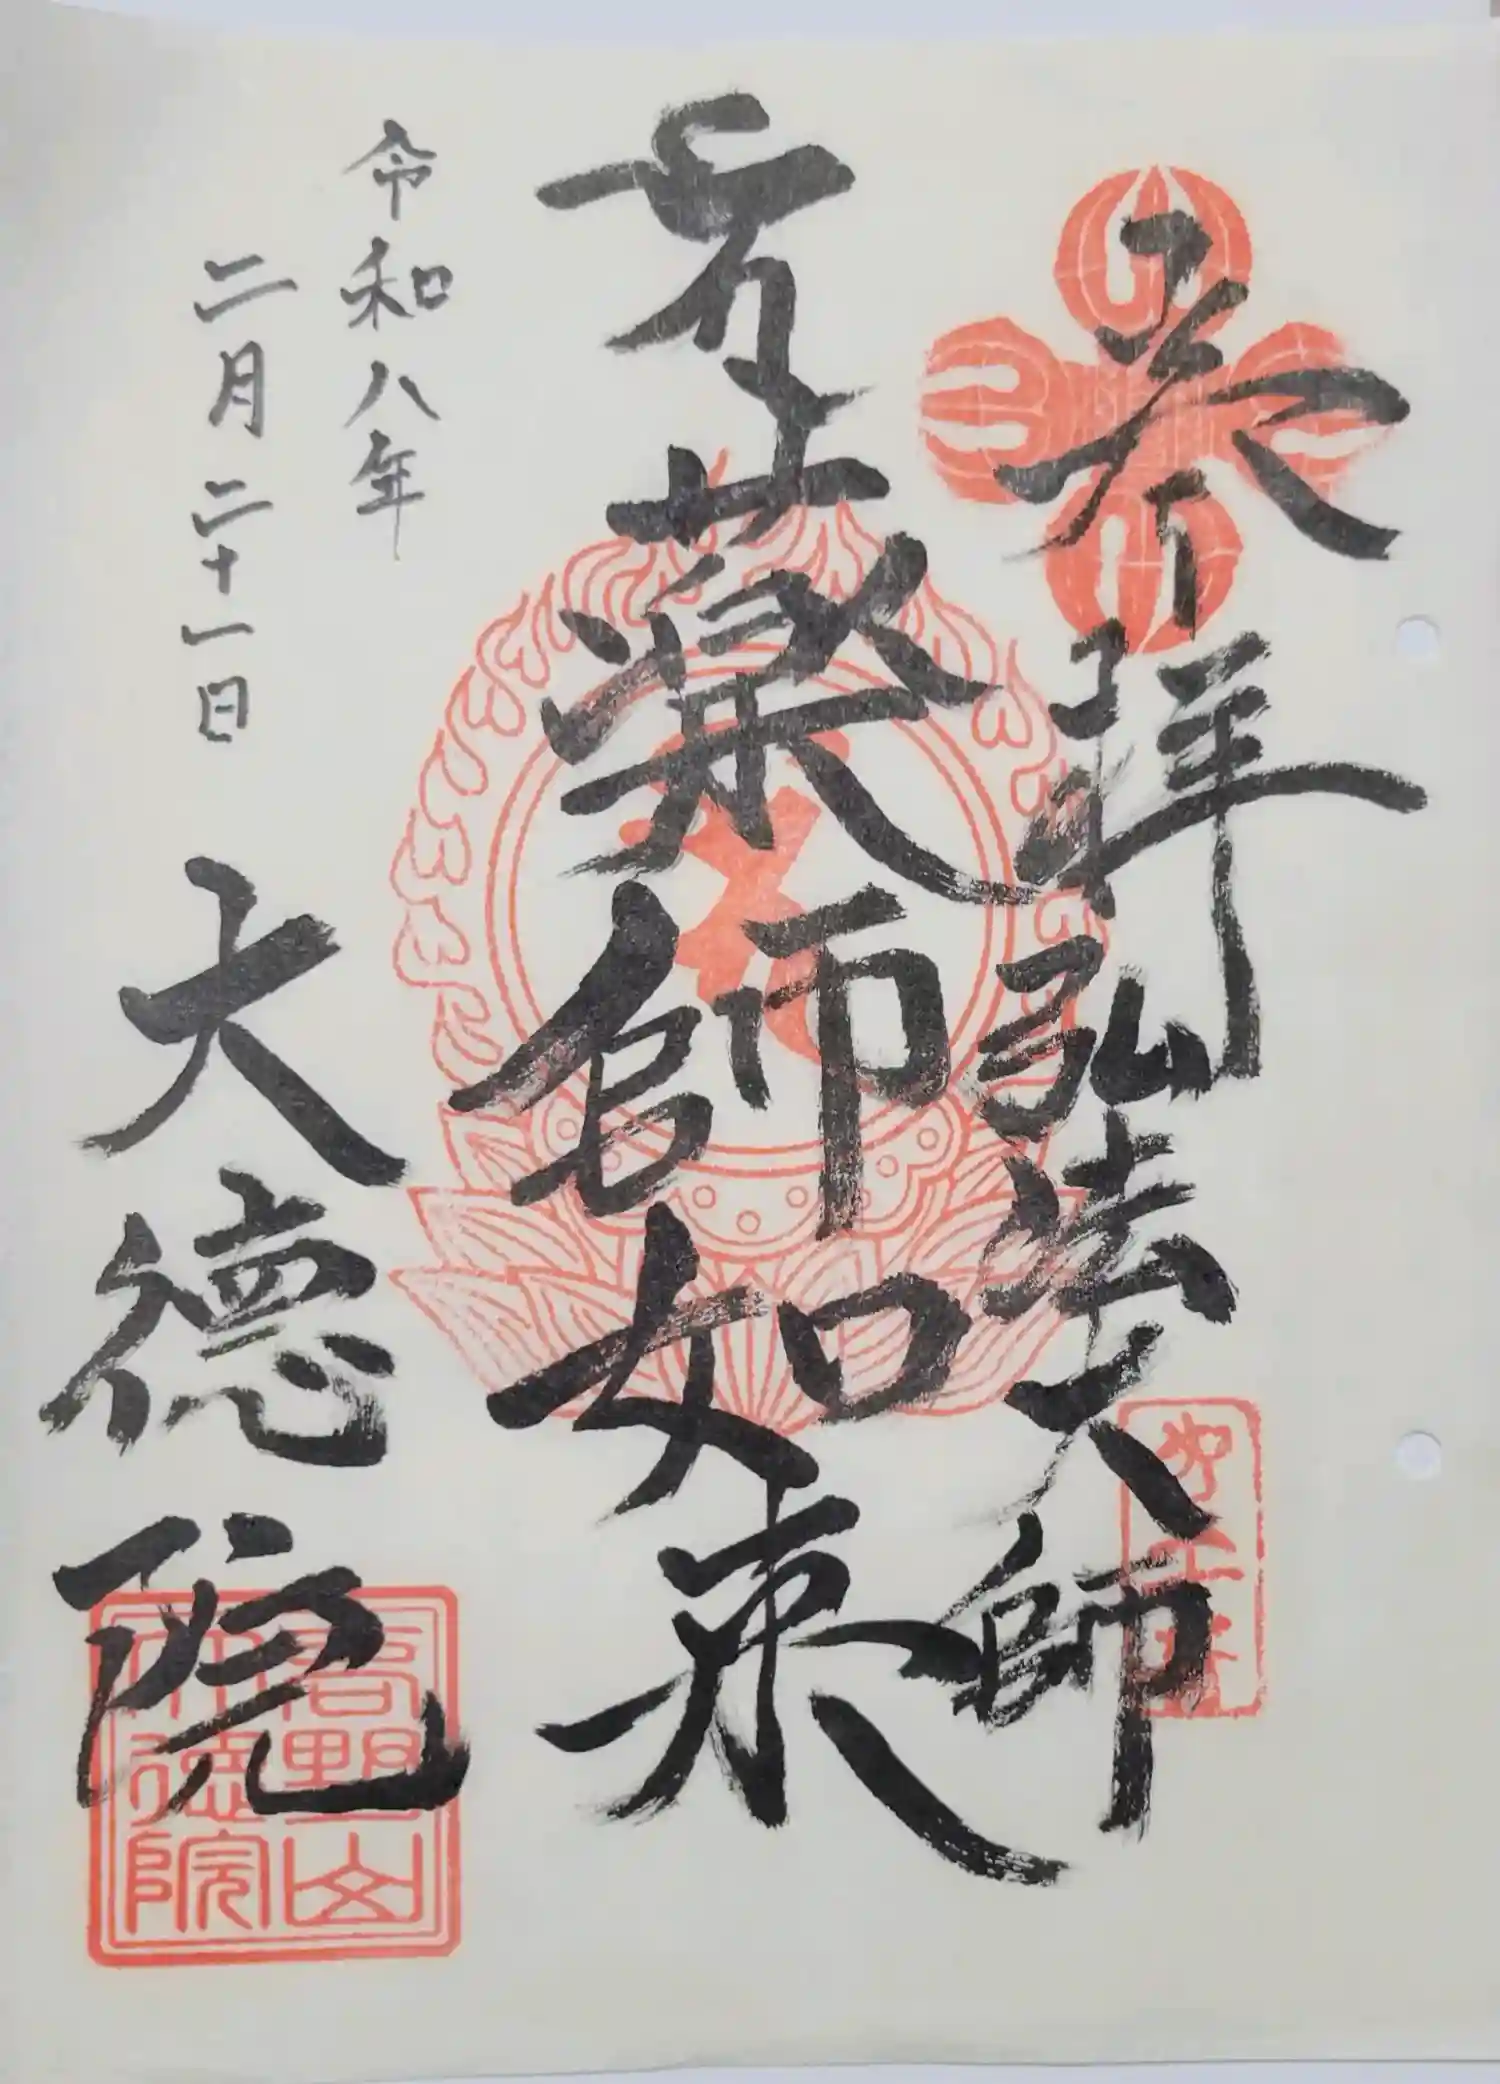 奉拝 弘法大師
薬師如来
令和八年
二月二十一日
大徳院
高野山
大徳院